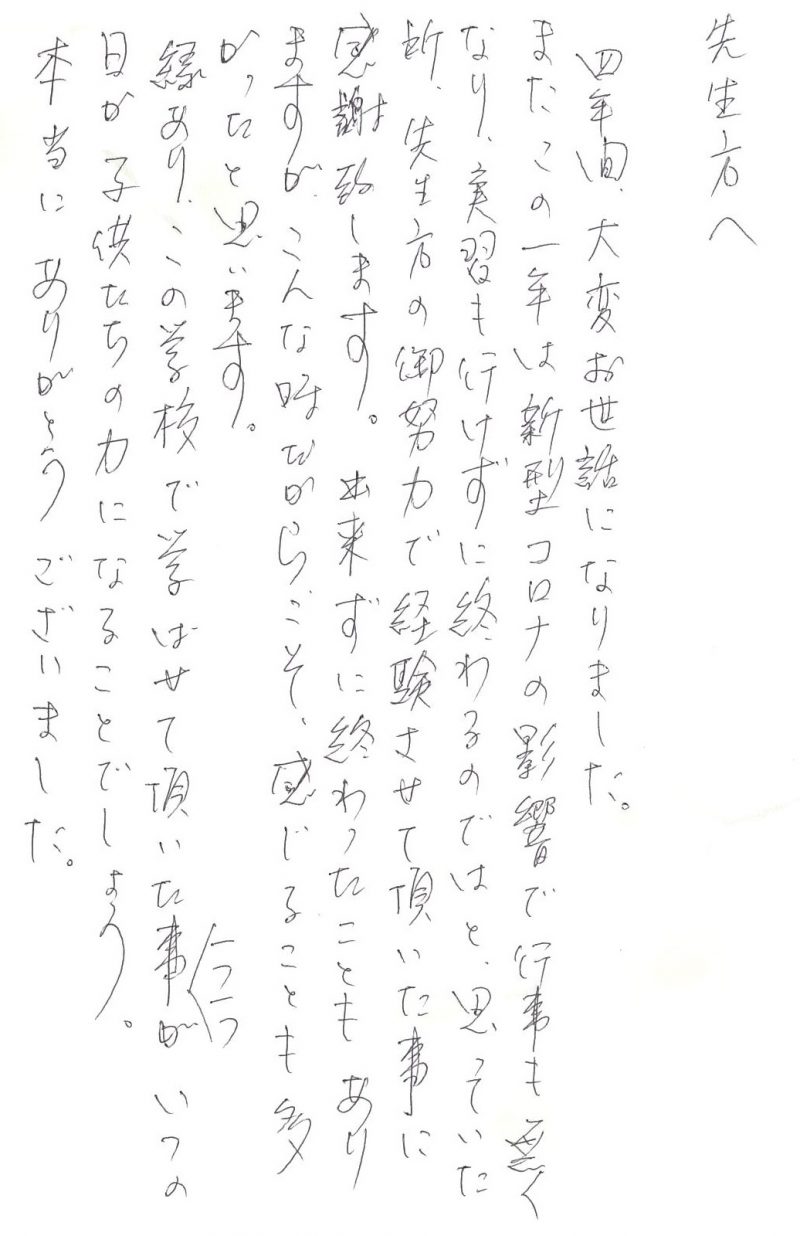 先生方へ
四年間、大変お世話になりました。
またこの一年は新型コロナの影響で行事も無く
なり、実習も行けずに終わるのではと、思っていた
所、先生方の御努力で経験させて頂いた事に
感謝致します。出来ずに終わったことも あり
ますが、こんな時ながらこそ、感じることも多
かったと思います。
縁あり、この学校で学ばせて頂いた事一つ一つが いつの
日か子供たちの力になることでしょう。
本当に ありがとう ございました。